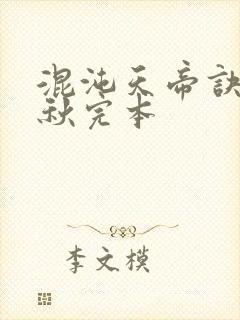 混沌天帝诀
秋完本
李文模